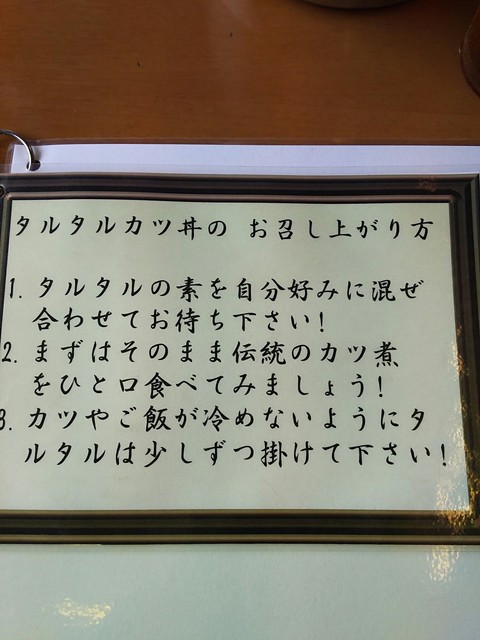 タルタルカツ丼の お召し上がり方
1. タルタルの素を自分好みに混ぜ
合わせてお待ち下さい!
2. まずはそのまま伝統のカツ煮
をひと口食べてみましょう!
3. カツやご飯が冷めないようにタ
ルタルは少しずつ掛けて下さい!